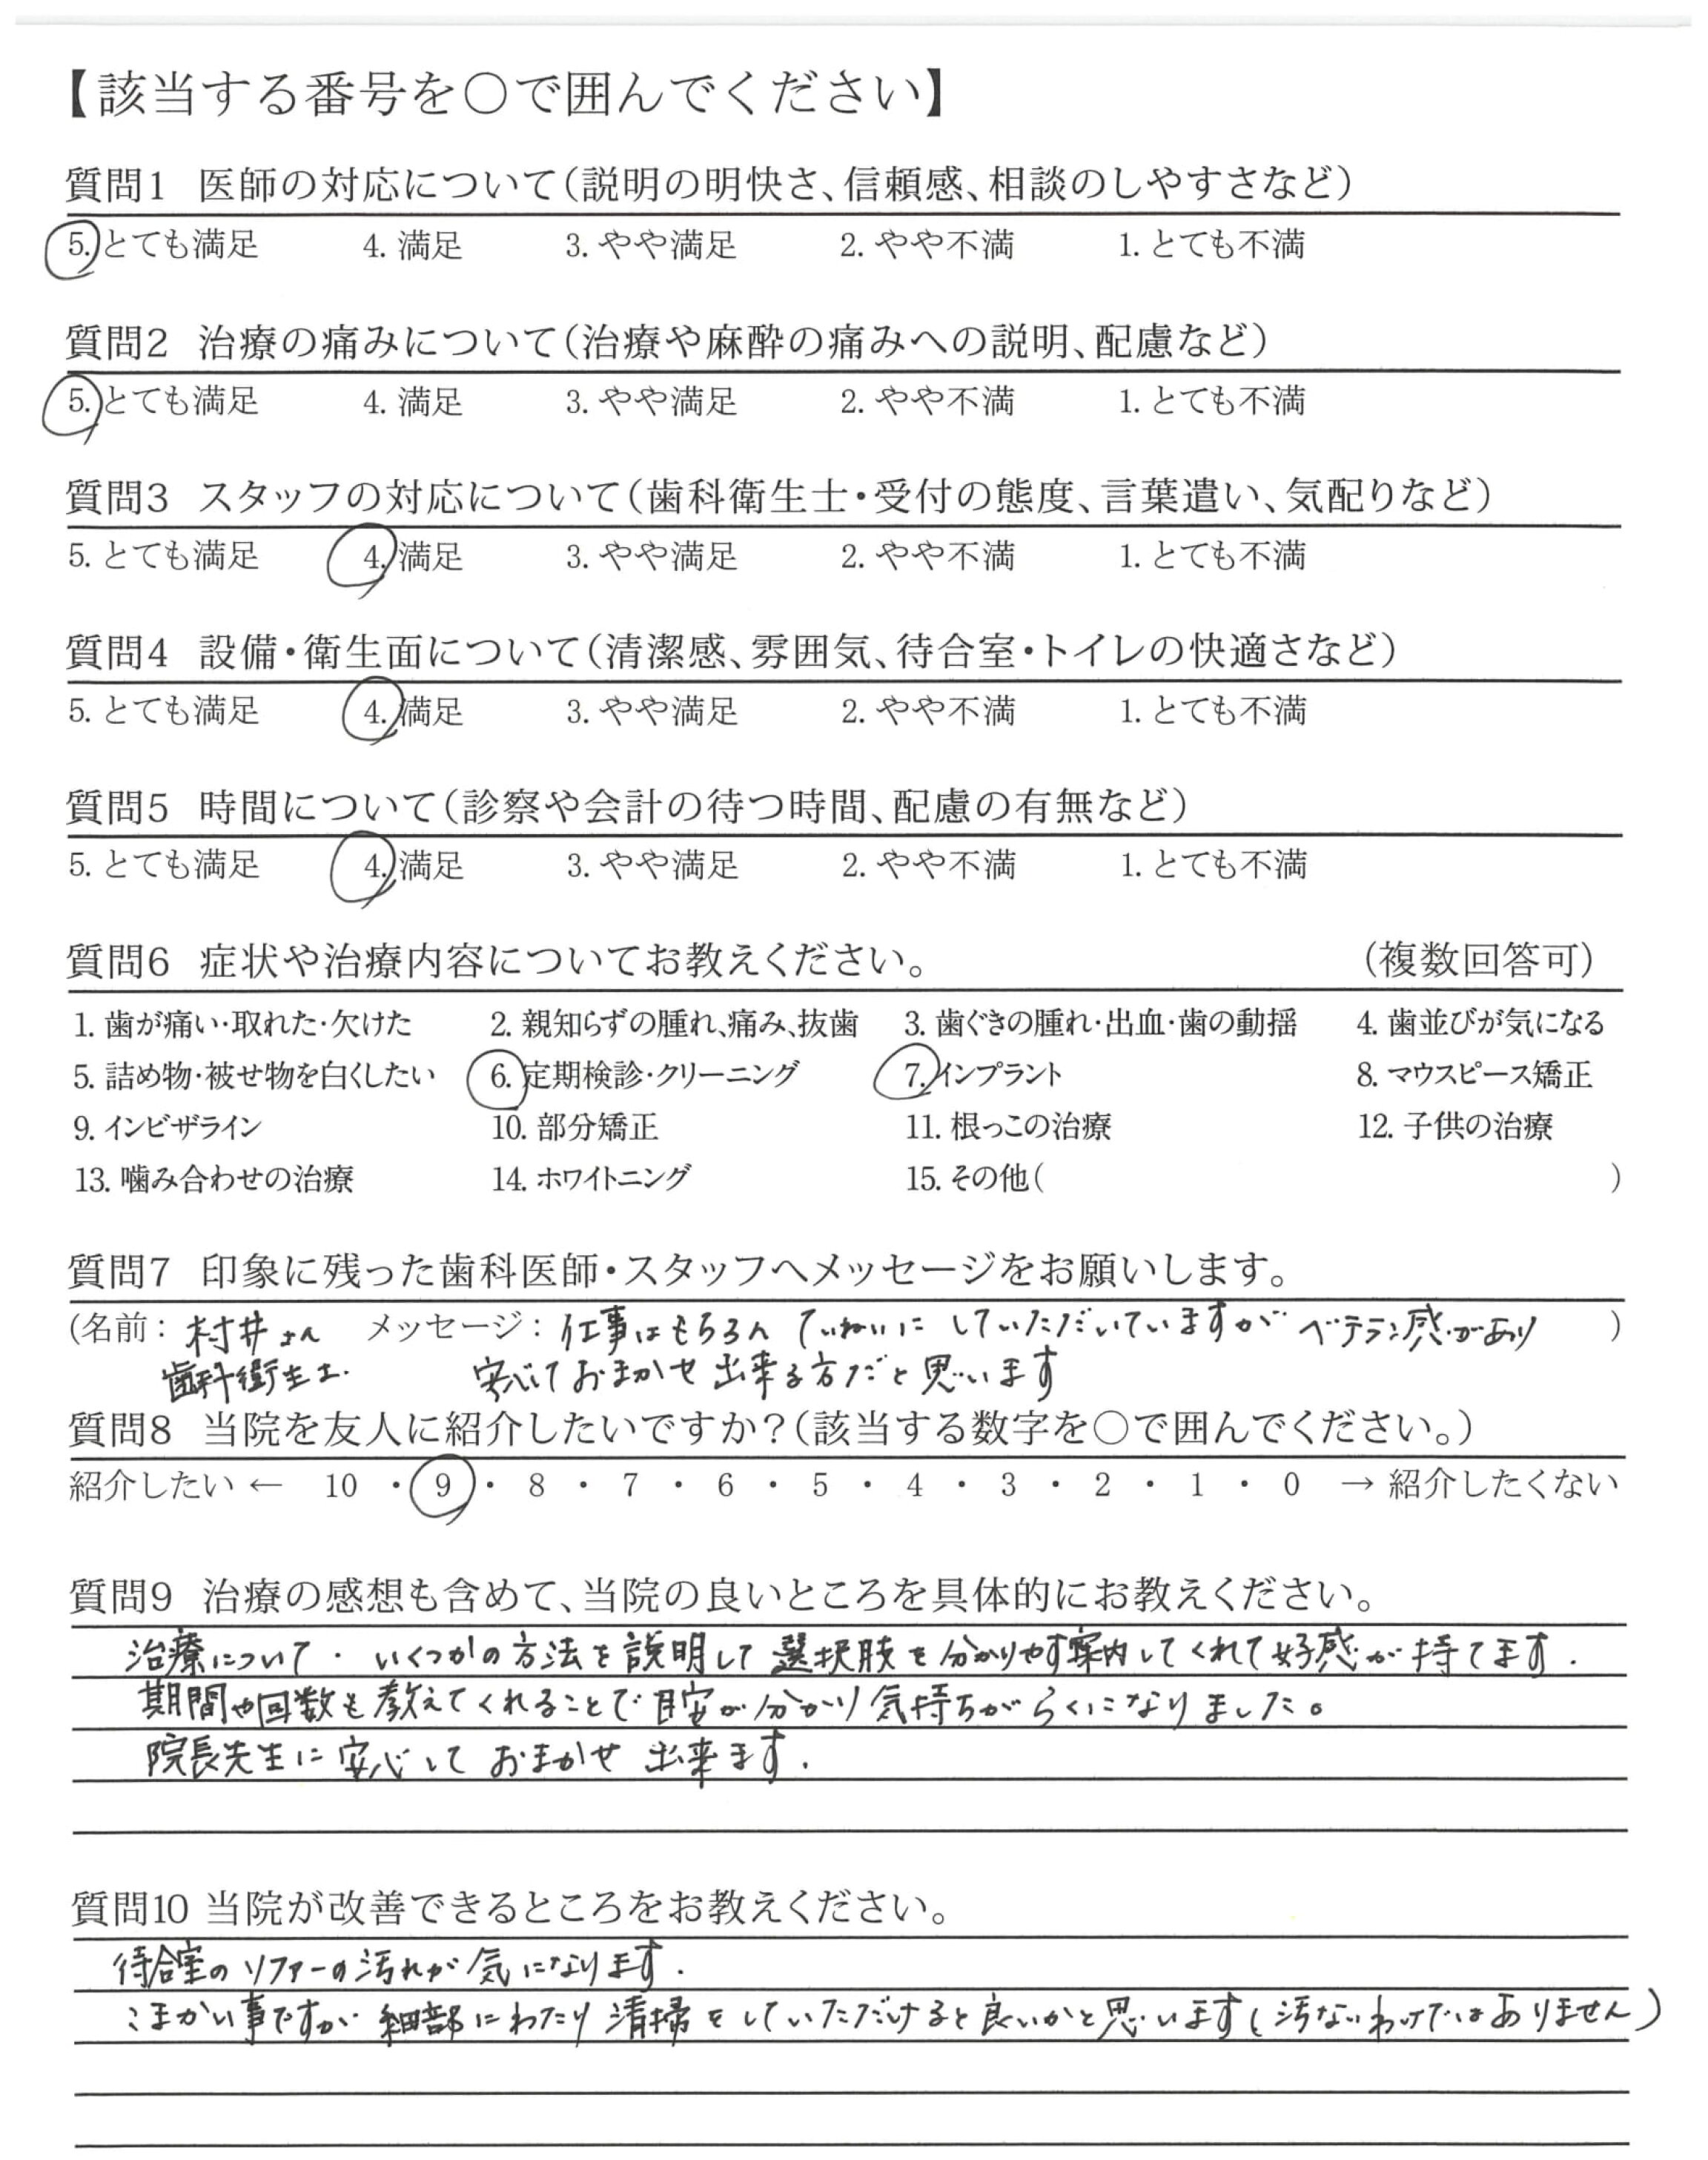 【該当する番号を○で囲んでください】
質問1 医師の対応について(説明の明快さ、信頼感、相談のしやすさなど)
5. とても満足 4. 満足 3. やや満足 2. やや不満 1. とても不満
質問2 治療の痛みについて(治療や麻酔の痛みへの説明、配慮など)
5. とても満足 4. 満足 3. やや満足 2. やや不満 1. とても不満
質問3 スタッフの対応について(歯科衛生士・受付の態度、言葉遣い、気配りなど)
5. とても満足 4. 満足 3. やや満足 2. やや不満 1. とても不満
質問4 設備・衛生面について(清潔感、雰囲気、待合室・トイレの快適さなど)
5. とても満足 4. 満足 3. やや満足 2. やや不満 1. とても不満
質問5 時間について(診察や会計の待つ時間、配慮の有無など)
5. とても満足 4. 満足 3. やや満足 2. やや不満 1. とても不満
質問6 症状や治療内容についてお教えください。 (複数回答可)
1. 歯が痛い・取れた・欠けた 2. 親知らずの腫れ、痛み、抜歯 3. 歯ぐきの腫れ・出血・歯の動揺 4. 歯並びが気になる
5. 詰め物・被せ物を白くしたい 6. 定期検診・クリーニング 7. インプラント 8. マウスピース矯正
9. インビザライン 10. 部分矯正 11. 根っこの治療 12. 子供の治療
13. 噛み合わせの治療 14. ホワイトニング 15. その他( )
質問7 印象に残った歯科医師・スタッフへメッセージをお願いします。
(名前: 村井さん メッセージ: 仕事はもちろん ていねいに していただいていますが ベテラン感があり )
歯科衛生士. 安心しておまかせ出来る方だと思います
質問8 当院を友人に紹介したいですか?(該当する数字を○で囲んでください。)
紹介したい ← 10 ・ 9 ・ 8 ・ 7 ・ 6 ・ 5 ・ 4 ・ 3 ・ 2 ・ 1 ・ 0 → 紹介したくない
質問9 治療の感想も含めて、当院の良いところを具体的にお教えください。
治療について・いくつかの方法を説明して選択肢を分かりやす案内してくれて好感が持てます.
期間や回数も教えてくれることで目安が分かり気持ちがらくになりました。
院長先生に安心しておまかせ出来ます.
質問10 当院が改善できるところをお教えください。
待合室のソファーの汚れが気になります.
こまかい事ですが細部にわたり清掃をしていただけると良いかと思います(汚ないわけではありません)